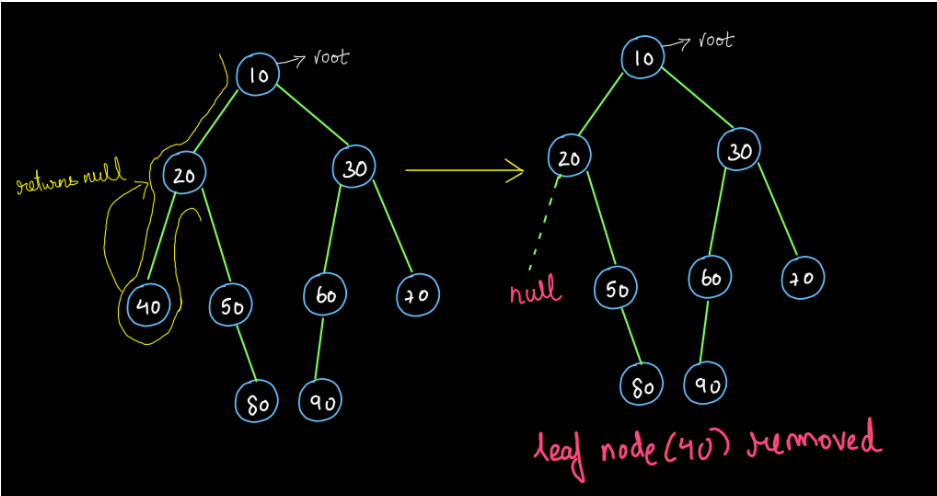 10 → root
20
30
returns null
40
50
60
70
80
90
10 → root
20
30
null
50
60
70
80
90
leaf node (40) removed